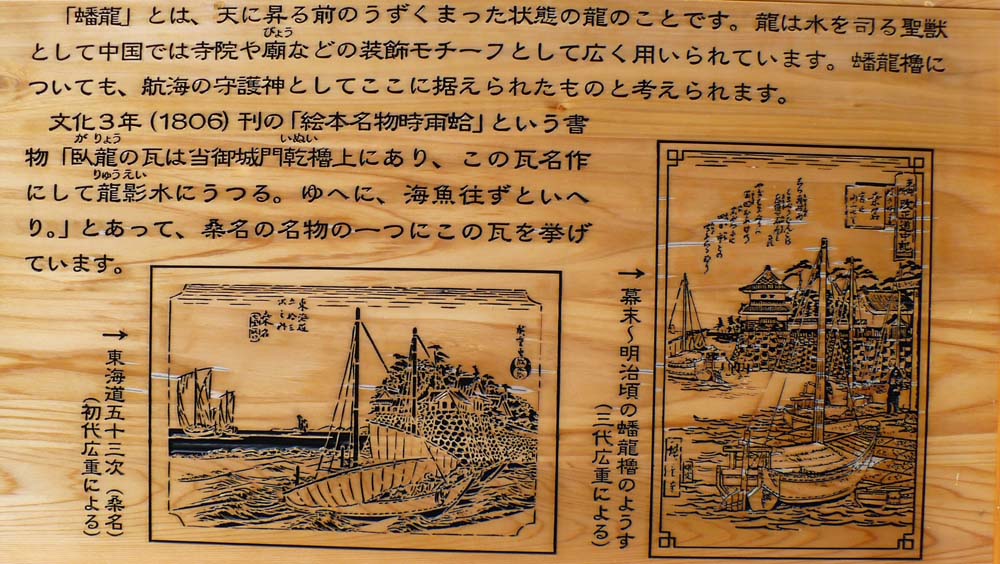 「蟠龍」とは、天に昇る前のうずくまった状態の龍のことです。龍は水を司る聖獣
びょう
として中国では寺院や廟などの装飾モチーフとして広く用いられています。蟠龍櫓に
ついても、航海の守護神としてここに据えられたものと考えられます。
文化3年(1806)刊の「絵本名物時雨蛤」という書
が りょう いぬい
物「臥龍の瓦は当御城門乾櫓上にあり、この瓦名作
りゅうえい
にして龍影水にうつる。ゆへに、海魚往ずといへ
り。」とあって、桑名の名物の一つにこの瓦を挙げ
ています。
→東海道五十三次(桑名)
(初代広重による)
東海道
五拾三
次之内
桑名
→幕末~明治頃の蟠龍櫓のようす
(三代広重による)